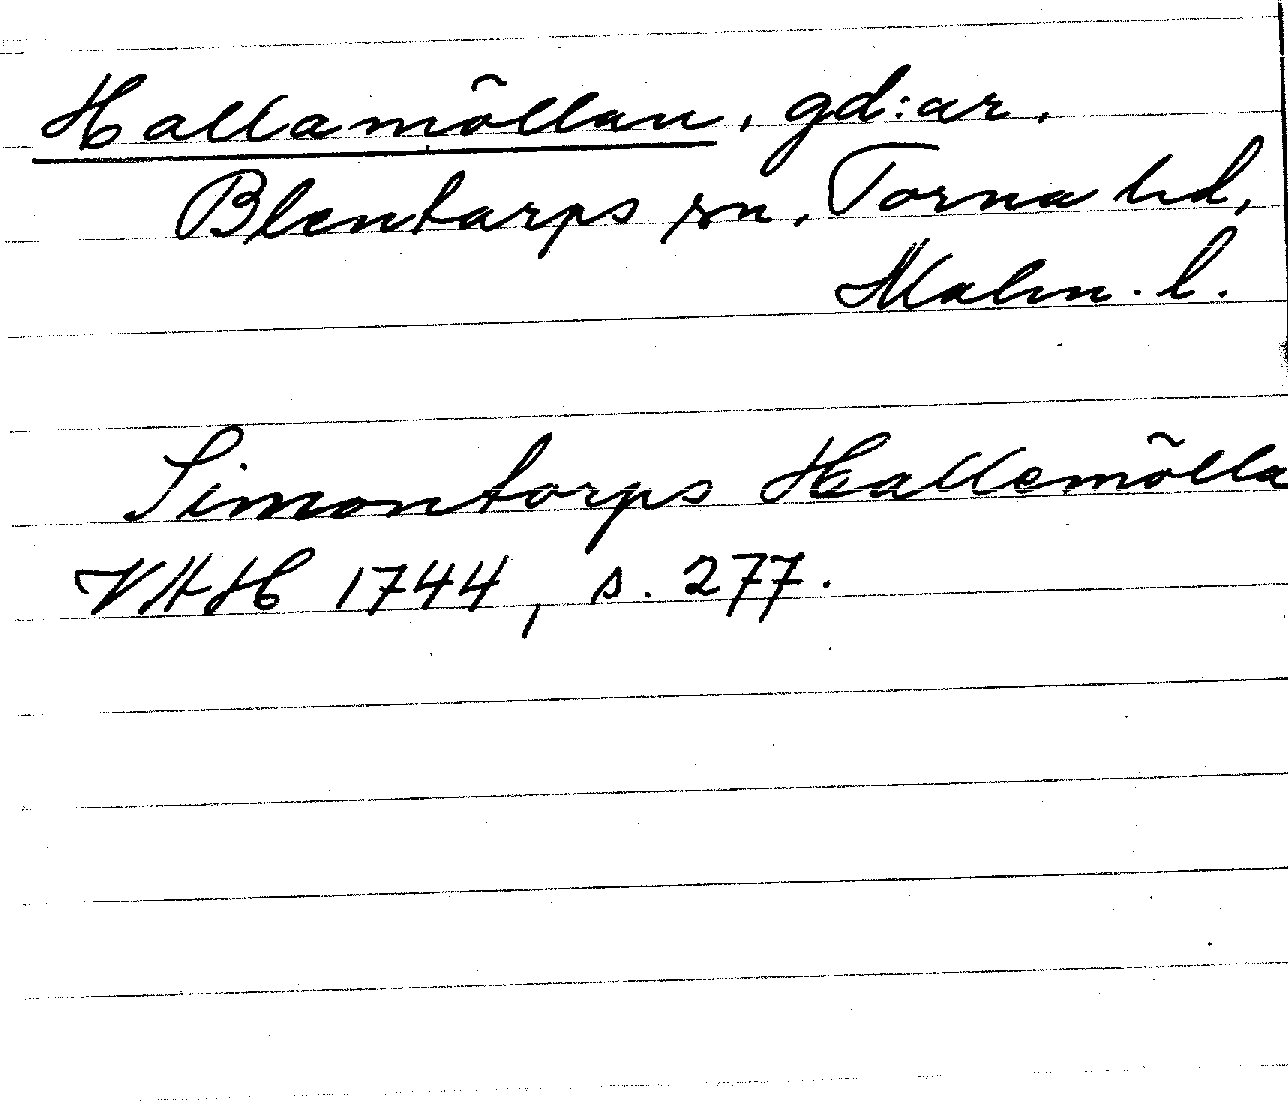 Hallamöllan, gd:ar,
Blentarps sn, Torna hd,
Malm. l.
Simontorps Hallemölla
VHH 1744, s. 277.